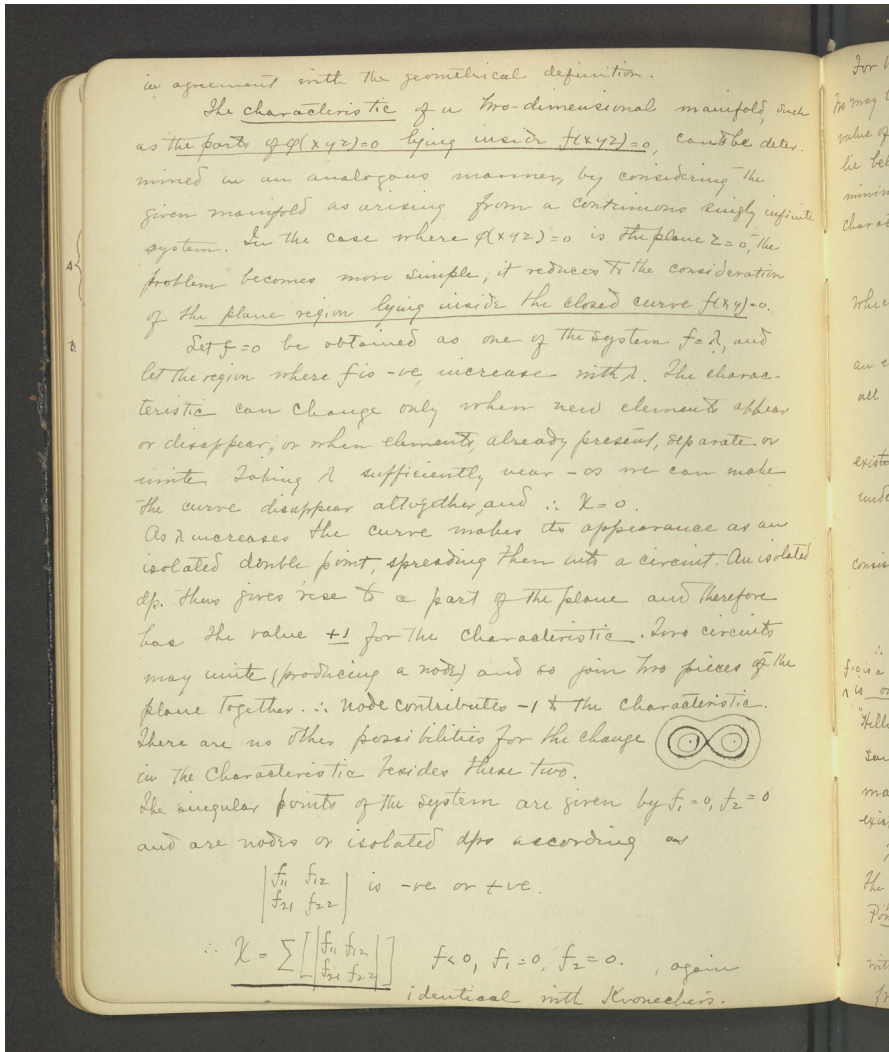 in agreement with the geometrical definition.
The characteristic of a two-dimensional manifold, such
as the parts of φ(xyz)=0 lying inside f(xyz)=0, can be deter-
mined in an analogous manner, by considering the
given manifold as arising from a continuous singly infinite
system. In the case where φ(xyz)=0 is the plane z=0, the
problem becomes more simple; it reduces to the consideration
of the plane region lying inside the closed curve f(xy)=0.
Let f=0 be obtained as one of the system f=λ, and
let the region where f is -ve, increase with λ. The charac-
teristic can change only when new elements appear
or disappear, or when elements, already present, separate or
unite. Taking λ sufficiently near -∞ we can make
the curve disappear altogether, and ∴ X=0.
As λ increases the curve makes its appearance as an
isolated double point, spreading then into a circuit. An isolated
dp. thus gives rise to a part of the plane and therefore
has the value +1 for the characteristic. Two circuits
may unite (producing a node) and so join two pieces of the
plane together. ∴ node contributes -1 to the characteristic.
There are no other possibilities for the change
in the characteristic besides these two.
The singular points of the system are given by f₁=0, f₂=0
and are nodes or isolated dps according as
|f₁₁ f₁₂| is -ve or +ve.
|f₂₁ f₂₂|
∴ X = Σ[|f₁₁ f₁₂|] f<0, f₁=0, f₂=0. , again
|f₂₁ f₂₂|
identical with Kronecker's.
For
value of
all
exist
consis
∴
f=0 is a
λ is
The